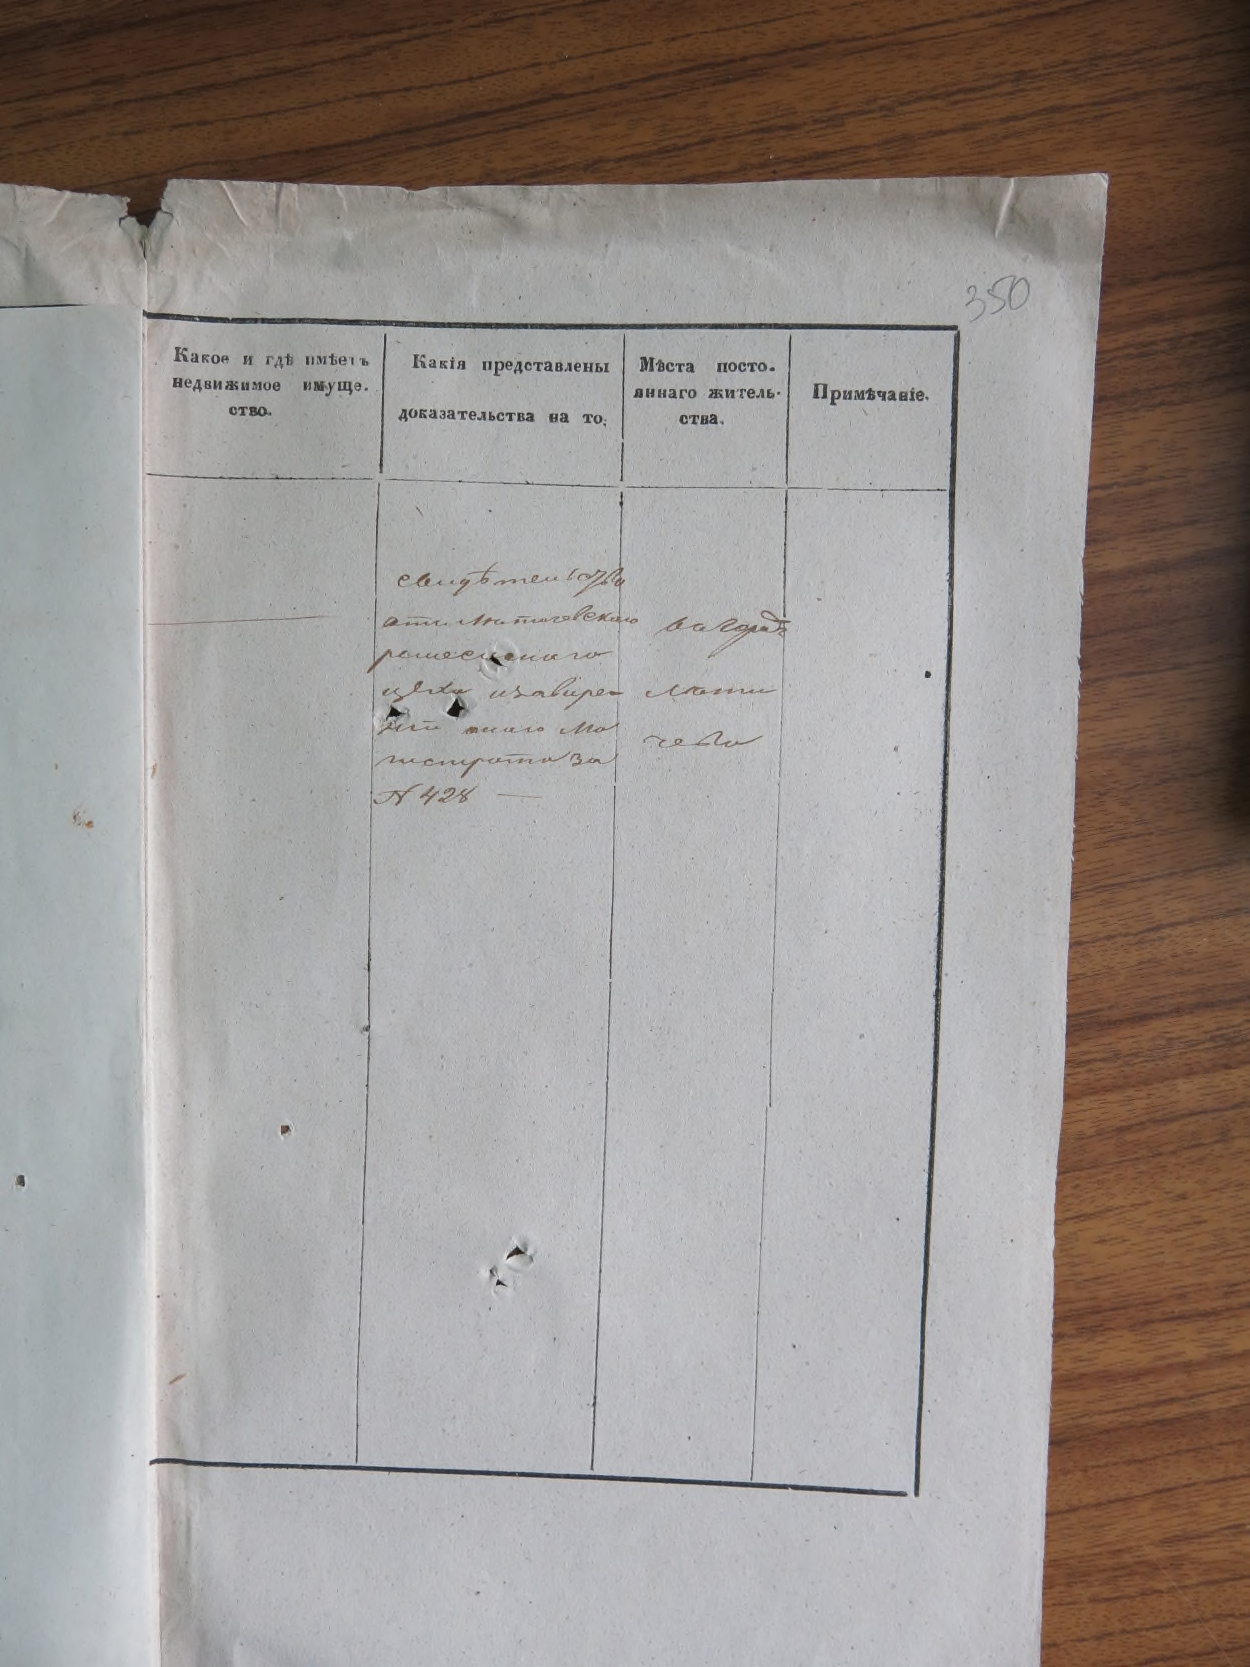 350
Какое и гдѣ имѣетъ
недвижимое имуще-
ство.
Какія представлены
доказательства на то.
Мѣста посто-
яннаго житель-
ства.
Примѣчаніе.
свидѣтельство
отъ Литичевскаго
ремесленаго
цеха изавере-
ніи онаго Ма
гистрата за
N 428 —
въ Городѣ
Лети
чево